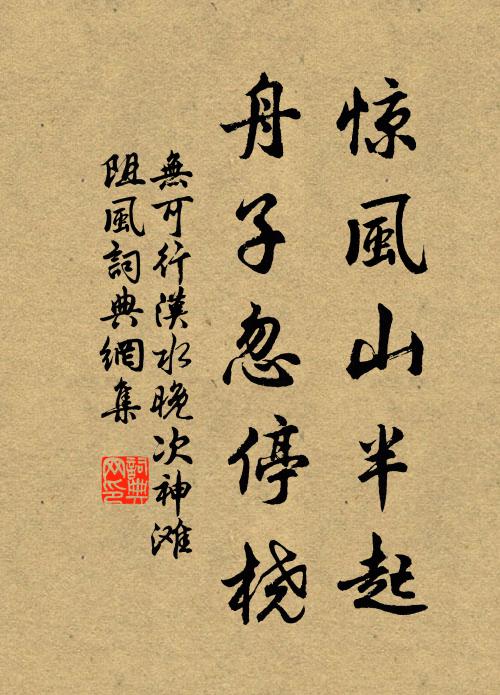 惊風山半起
舟子忽停桡
無可行漢水晚次神滩
阻風詞典網集
詞典
网印